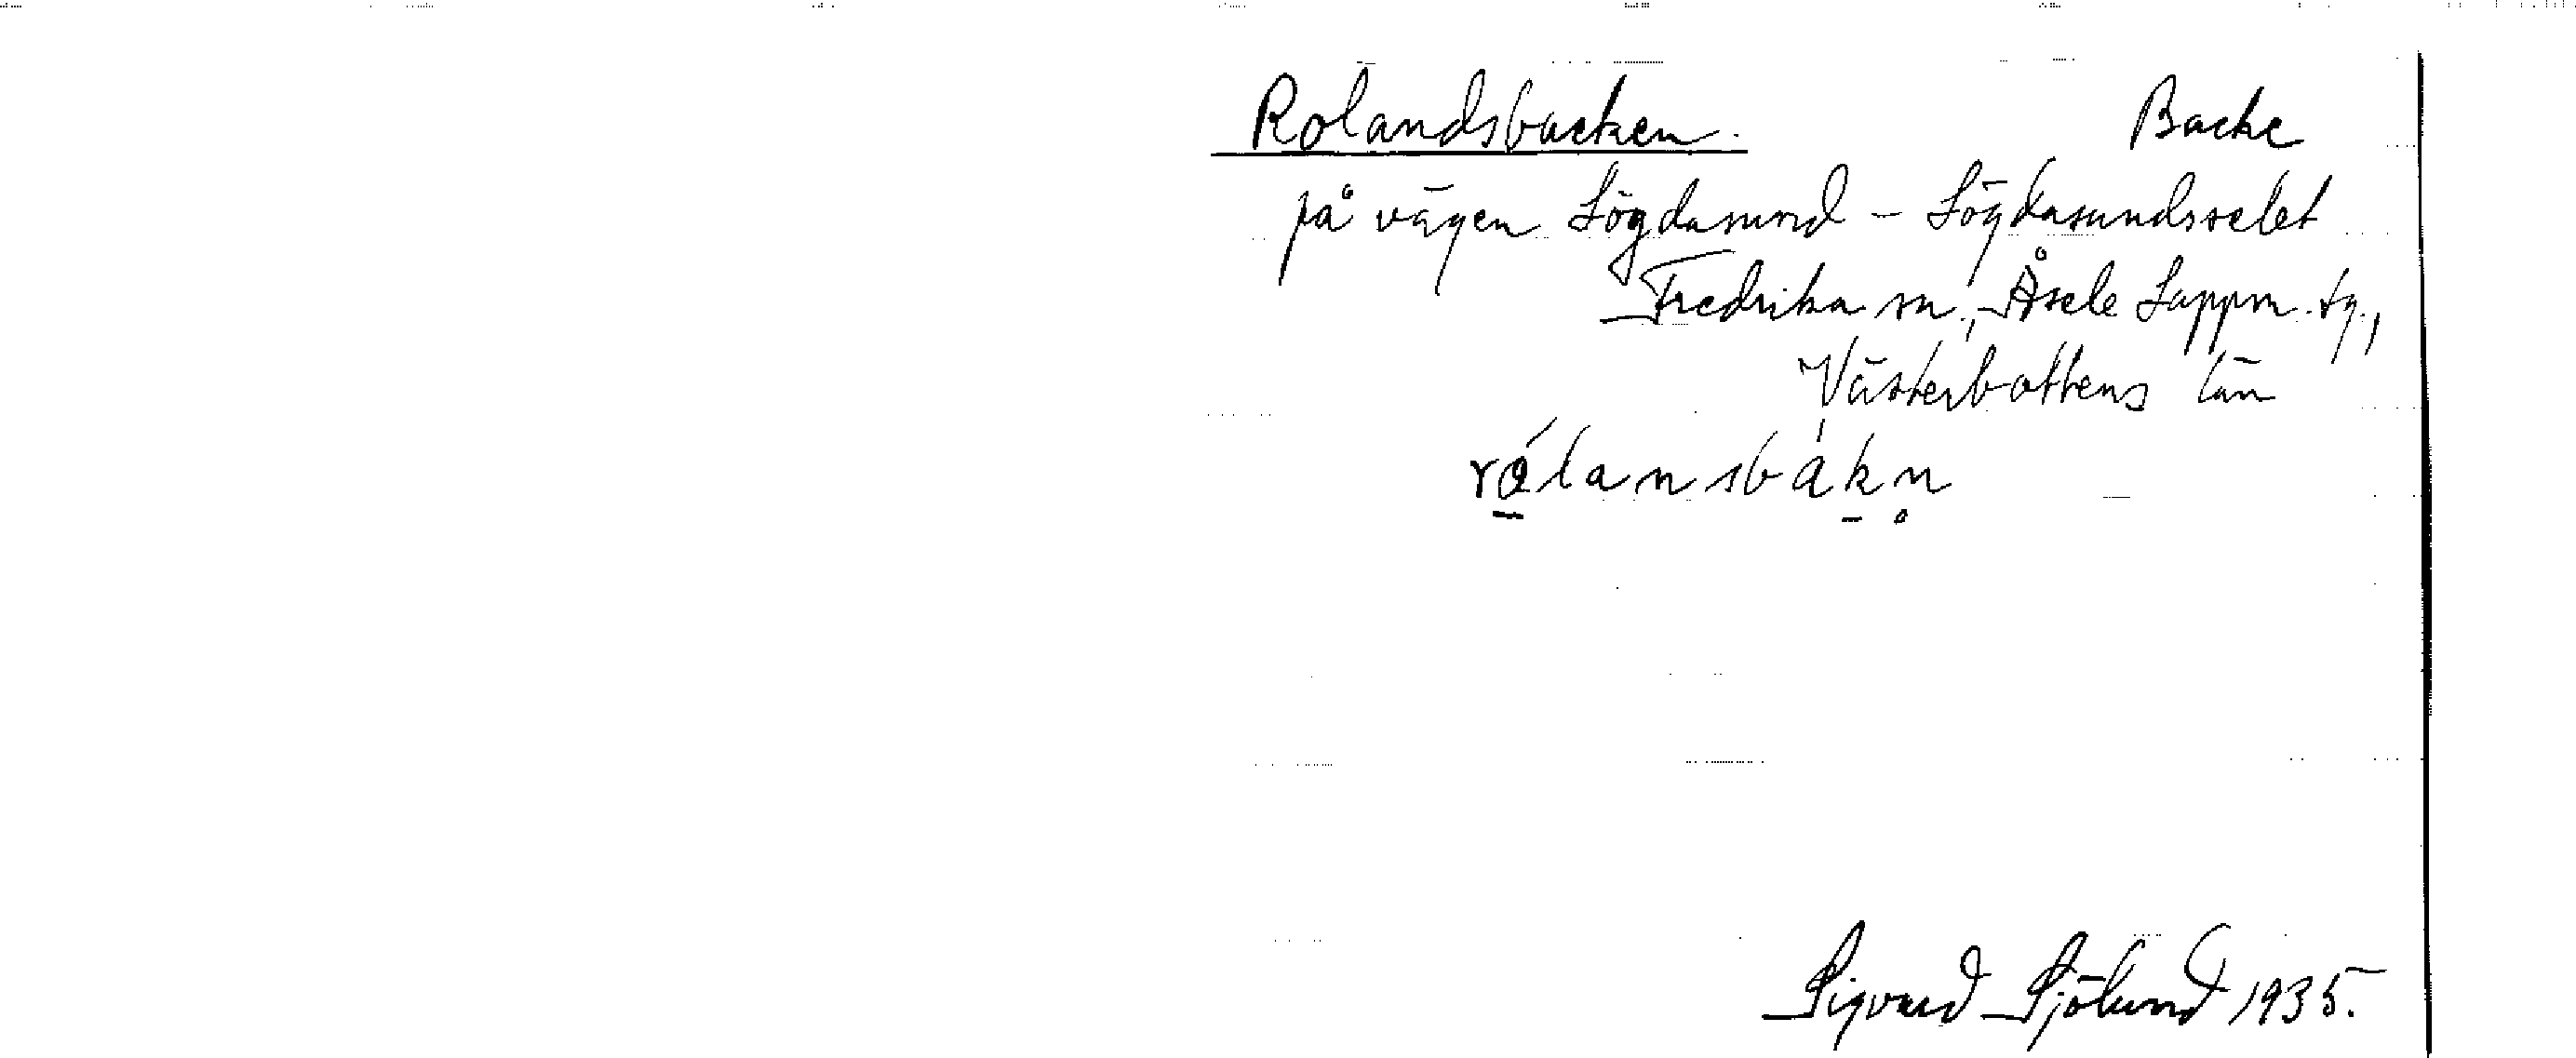 Rolandsbacken. Backe
på vägen Lögdasund - Lögdasundsselet
Fredrika sn., Åsele Lappm. tg.,
Västerbottens län
rólansbàkn̥
Sigvard Sjölund 1935.